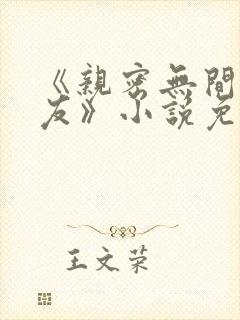 《親密無間
友》小説免
王文荣